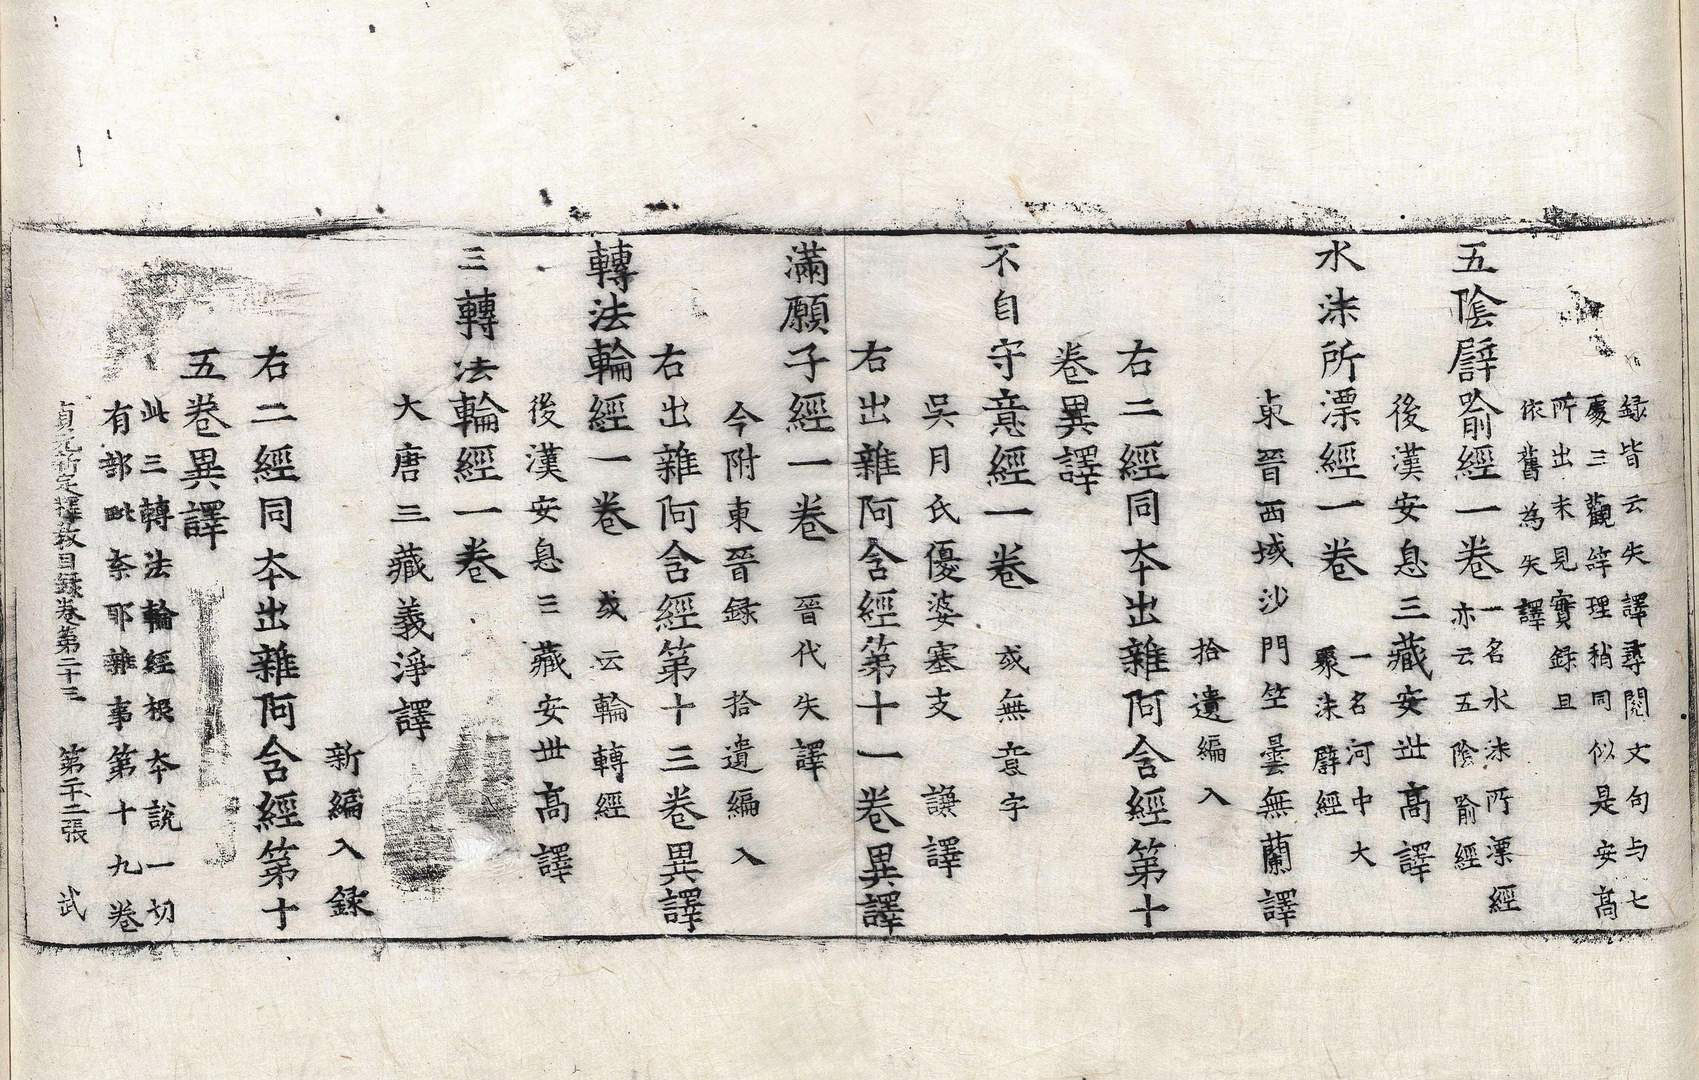 録皆云失譯尋閱文句与七
處三觀詳理稍同似是安高
所出未見實録且
依舊為失譯
五陰譬喻經一卷 一名水沫所漂經
亦云五陰喻經
後漢安息三藏安世高譯
水沫所漂經一卷 一名河中大
聚沫譬經
東晉西域沙門竺曇無蘭譯
拾遺編入
右二經同夲出雜阿含經第十
卷異譯
不自守意經一卷 或無意字
吳月氏優婆塞支謙譯
右出雜阿含經第十一卷異譯
滿願子經一卷 晉代失譯
今附東晉録 拾遺編入
右出雜阿含經第十三卷異譯
轉法輪經一卷 或云輪轉經
後漢安息三藏安世高譯
三轉法輪經一卷
大唐三藏義淨譯
新編入録
右二經同夲出雜阿含經第十
五卷異譯
此三轉法輪經根夲說一切
有部毗奈耶雜事第十九卷
貞元新定釋教目録卷第二十三 第二十二張 武